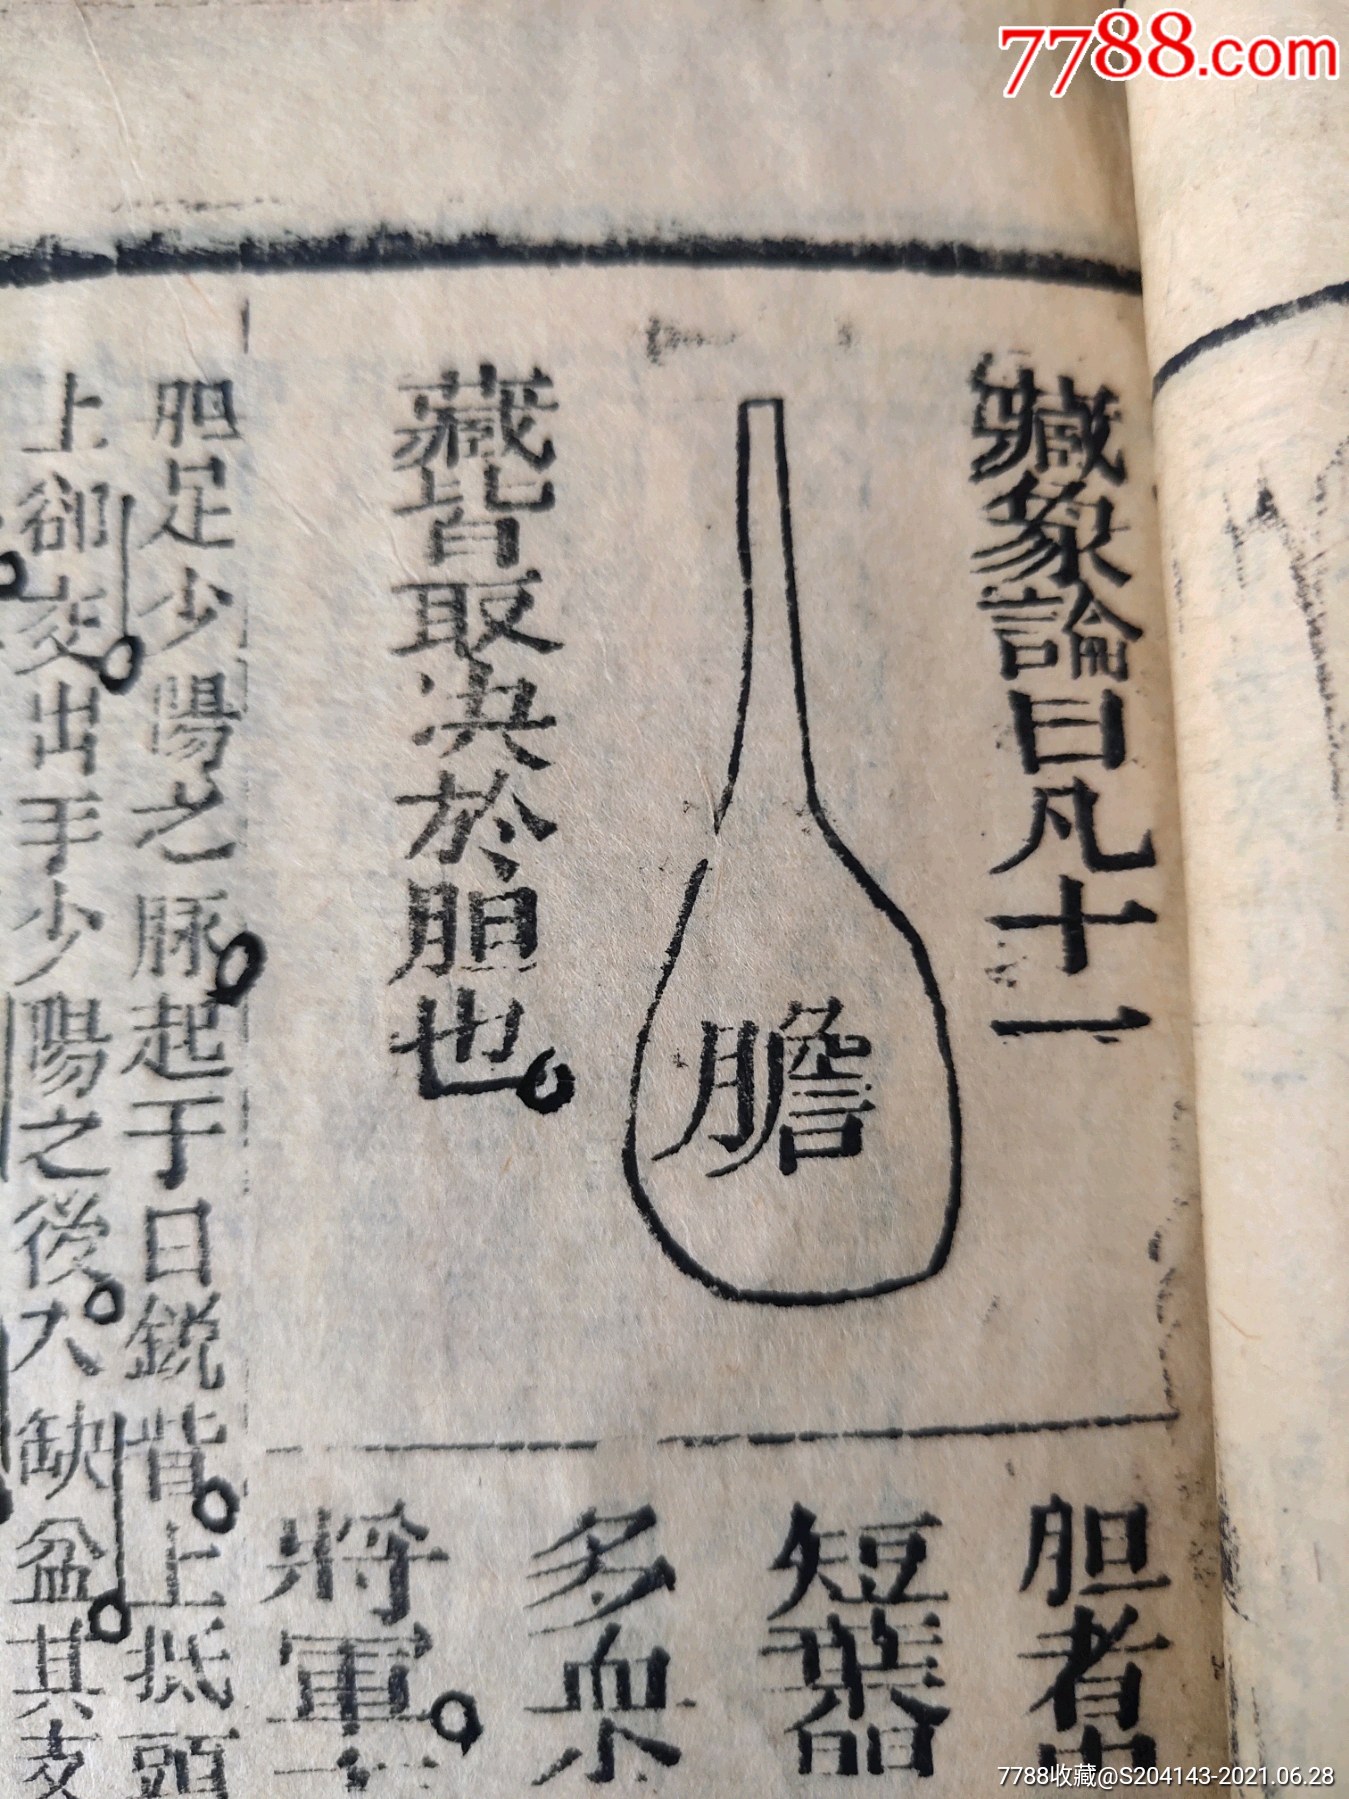 7788.com
藏象論曰凡十一
膽
藏皆取决於胆也
胆者
短葉
多血少
將軍
胆足少陽之脉起于日銳眥上抵頭
上卻交出手少陽之後入缺盆其支
7788收藏@S204143-2021.06.28